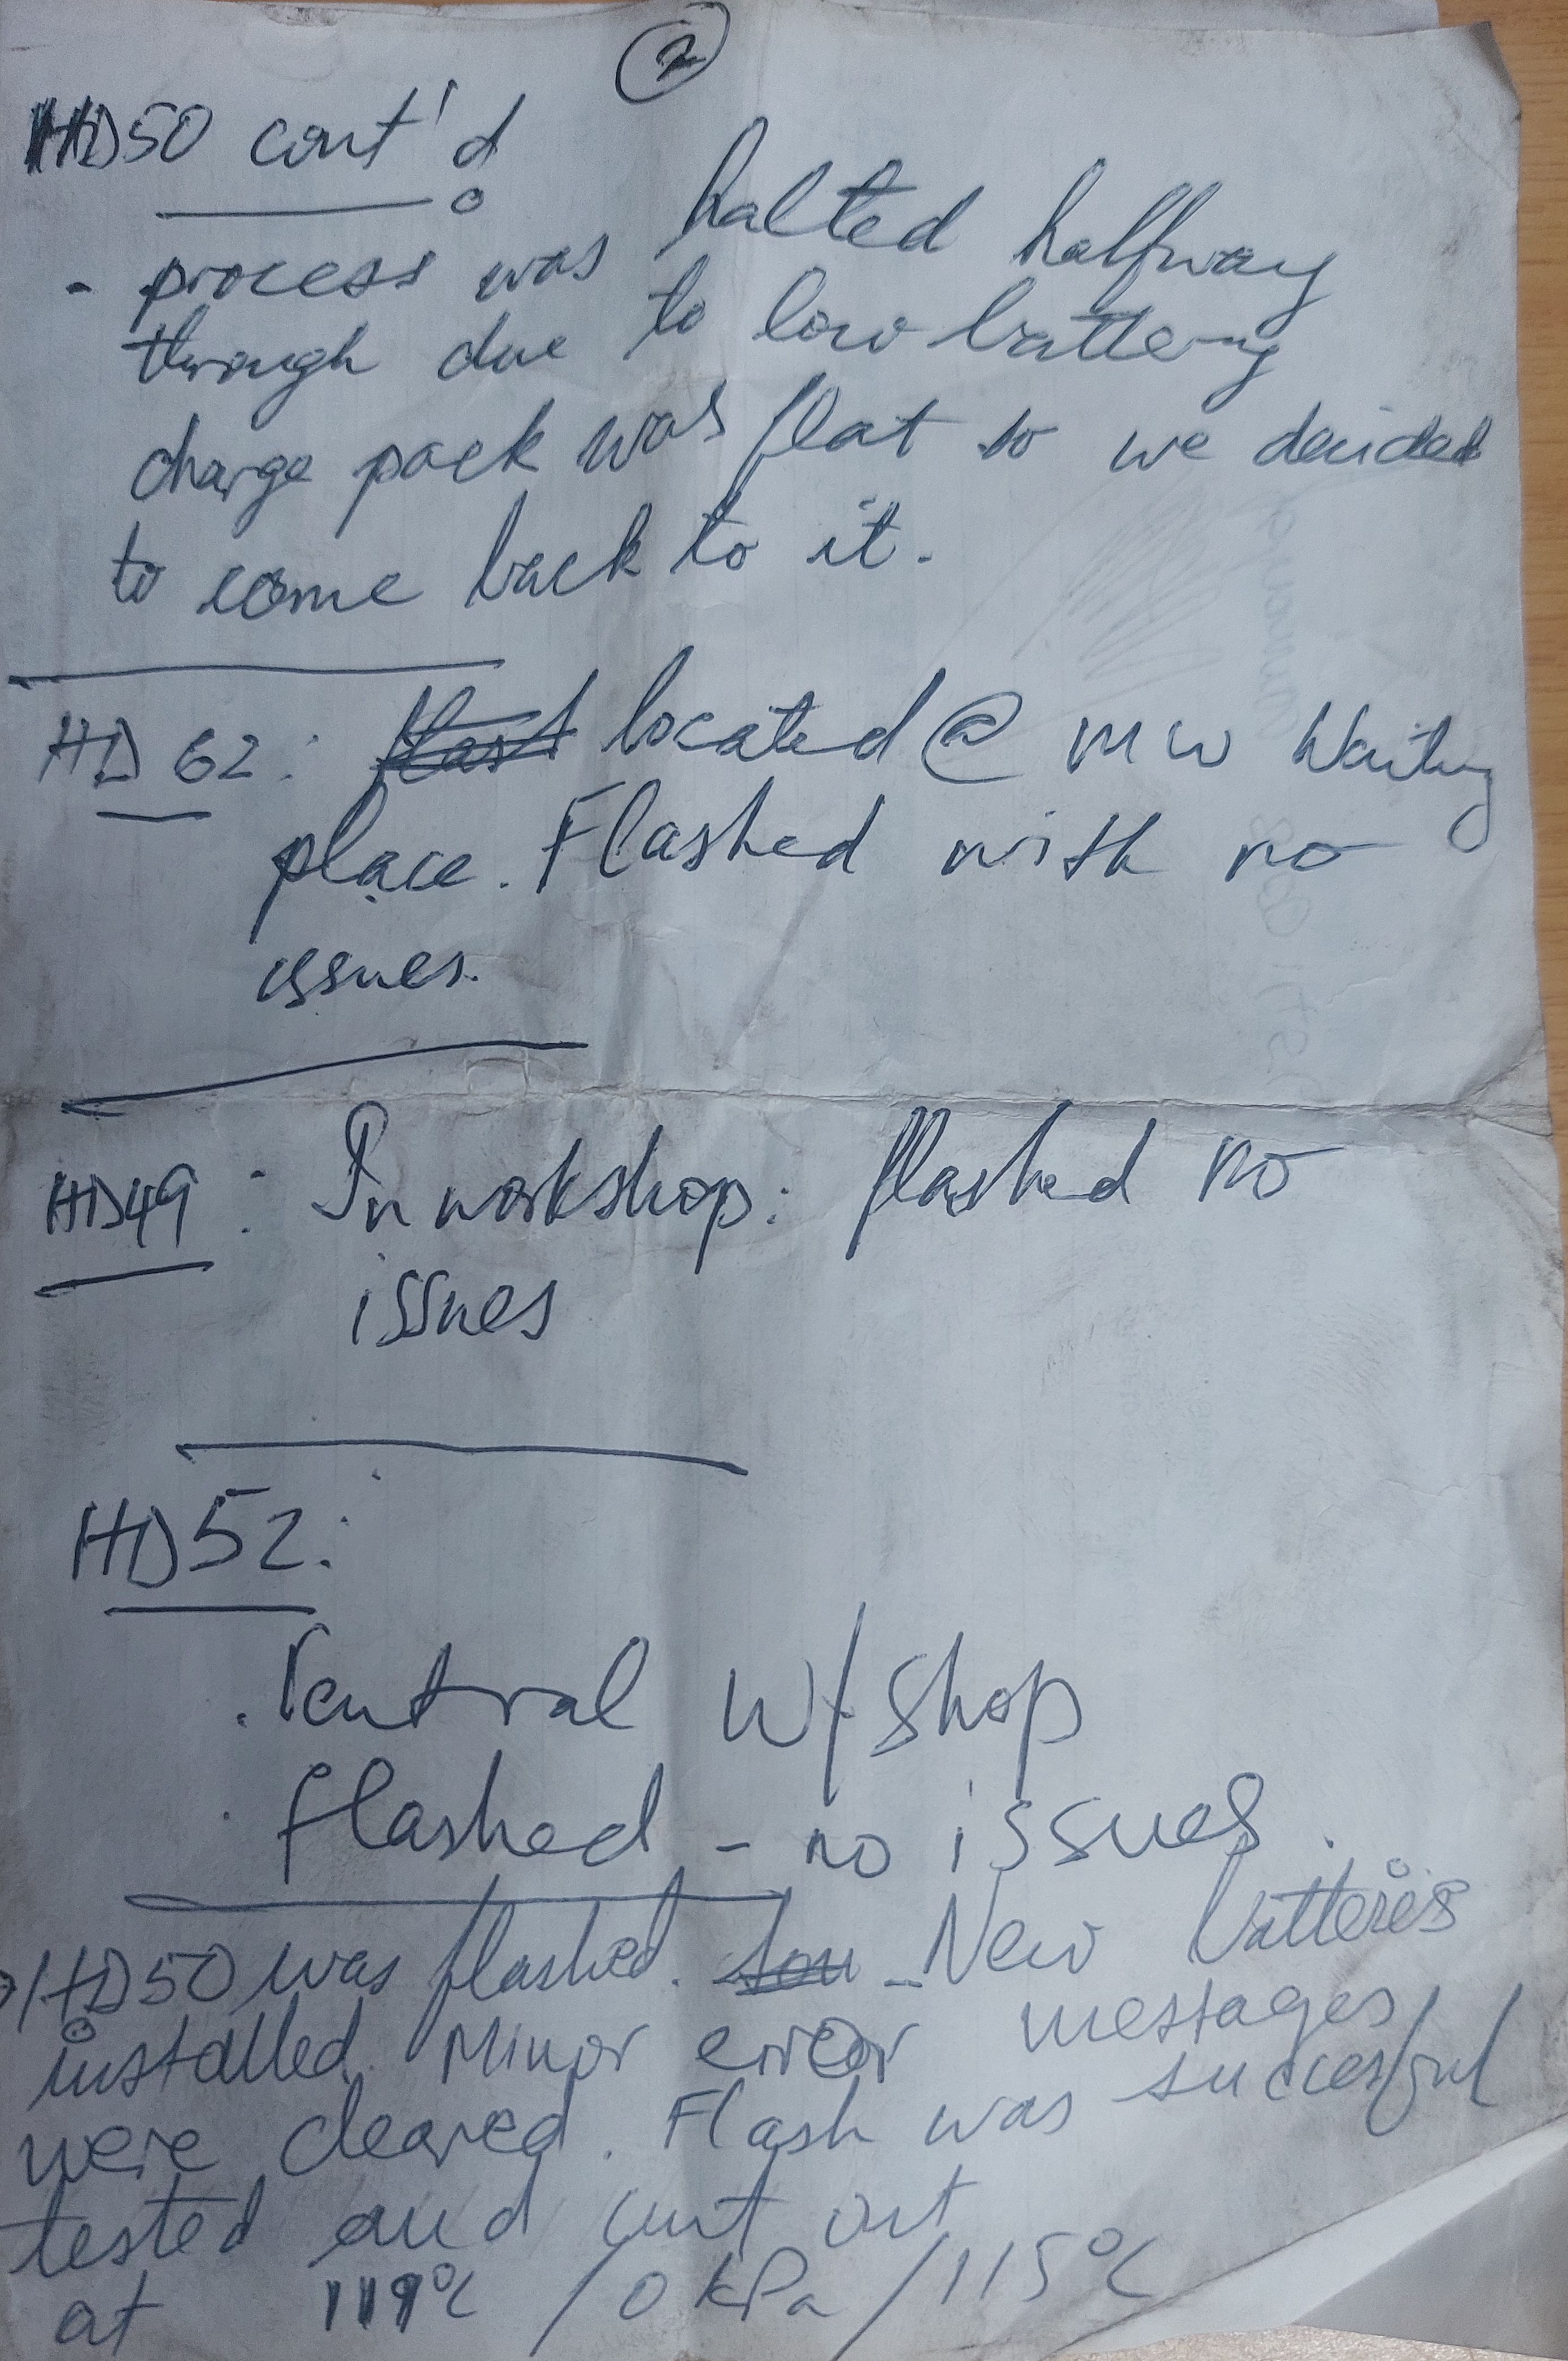 2
HD50 cont'd
- process was halted halfway
through due to low battery
charge pack was flat so we decided
to come back to it.
HD 62: located @ MW Waiting
place. Flashed with no
issues.
HD49: In workshop: flashed no
issues
HD52:
. Central W/Shop
. flashed - no issues.
HD50 was flashed. - New batteries
installed. Minor error messages
were cleared. Flash was succesful
tested and cut out
at 119°C / 0 kPa / 115°C